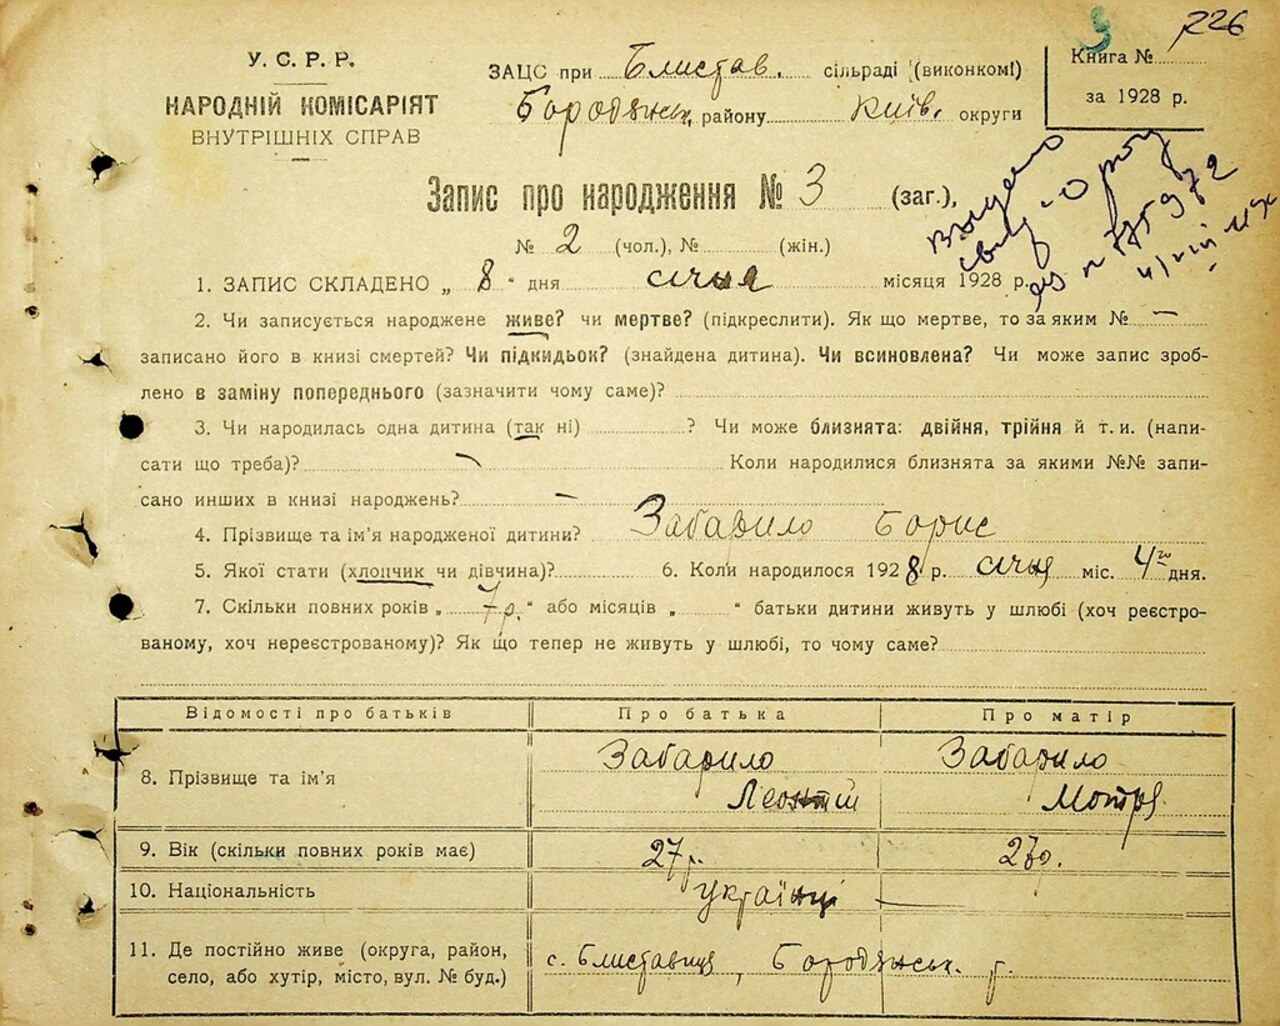 3 226
У. С. Р. Р.
НАРОДНІЙ КОМІСАРІЯТ
ВНУТРІШНІХ СПРАВ
ЗАЦС при Блистав. сільраді (виконкомі)
Бородянськ. району Київ. округи
Книга №
за 1928 р.
Запис про народження № 3 (заг.),
№ 2 (чол.), № (жін.)
1. ЗАПИС СКЛАДЕНО „ 8 " дня січня місяця 1928 р.
2. Чи записується народжене живе? чи мертве? (підкреслити). Як що мертве, то за яким № —
записано його в книзі смертей? Чи підкидьок? (знайдена дитина). Чи всиновлена? Чи може запис зроб-
лено в заміну попереднього (зазначити чому саме)?
3. Чи народилась одна дитина (так ні) ? Чи може близнята: двійня, трійня й т. и. (напи-
сати що треба)? — Коли народилися близнята за якими №№ запи-
сано инших в книзі народжень? —
4. Прізвище та ім'я народженої дитини? Забарило Борис
5. Якої стати (хлопчик чи дівчина)? 6. Коли народилося 1928 р. січня міс. 4го дня.
7. Скільки повних років „ 7 р. " або місяців „ " батьки дитини живуть у шлюбі (хоч реєстро-
ваному, хоч нереєстрованому)? Як що тепер не живуть у шлюбі, то чому саме?
Відомості про батьків Про батька Про матір
8. Прізвище та ім'я Забарило Леонтій Забарило Мотря
9. Вік (скільки повних років має) 27 р. 27 р.
10. Національність українці —
11. Де постійно живе (округа, район,
село, або хутір, місто, вул. № буд.) с. Блиставиця, Бородянськ. р.